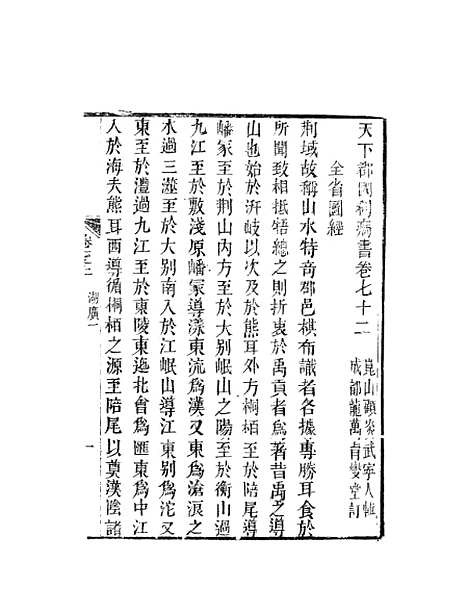 天下郡國利病書卷七十二
崑山顧炎武寧人輯
成都龍萬育燮堂訂
全省圖經
荆域故稱山水特奇郡邑棋布識者各據專勝耳食於
所聞致相抵牾總之則折衷於禹貢者為著昔禹之導
山也始於汧岐以次及於熊耳外方桐栢至於陪尾導
嶓冢至於荆山內方至於大别岷山之陽至於衡山過
九江至於敷淺原嶓冢導漾東流為漢又東為滄浪之
水過三澨至於大别南入於江岷山導江東别為沱又
東至於澧過九江至於東陵東迤北會為匯東為中江
入於海夫熊耳西導循桐栢之源至陪尾以奠漢陰諸
湖廣一
一